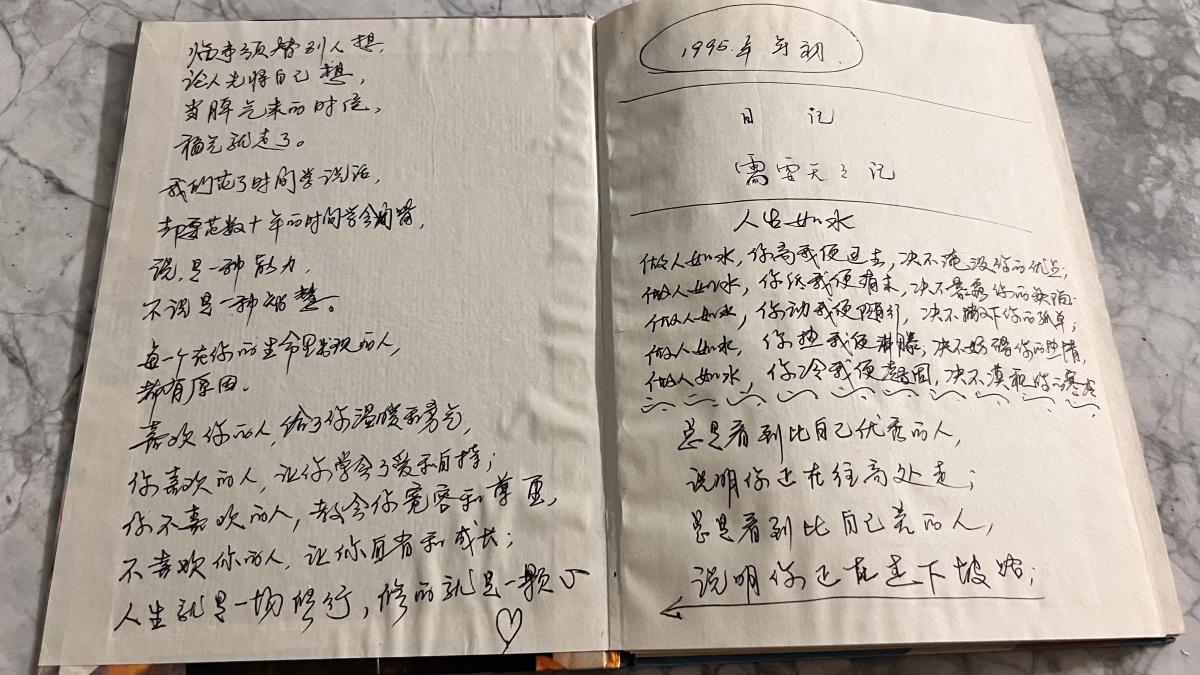 临事须替别人想,
论人先将自己想,
当脾气来的时候,
福气就走了。
我们花了时间学说话,
却要花数十年的时间学会闭嘴,
说,是一种能力,
不说是一种智慧。
每一个在你的生命里出现的人,
都有原因。
喜欢你的人,给了你温暖和勇气,
你喜欢的人,让你学会了爱和自持;
你不喜欢的人,教会你宽容和尊重,
不喜欢你的人,让你自省和成长;
人生就是一场修行,修的就是一颗心
1995.年 年初
日 记
需要天天记
人生如水
做人如水,你高我便退去,决不淹没你的优点,
做人如水,你低我便有来,决不暴露你的缺陷.
做人如水,你动我便随行,决不撇下你的孤单;
做人如水,你热我便沸腾,决不妨碍你的热情,
做人如水,你冷我便凝固,决不漠视你的寒冷
总是看到比自己优秀的人,
说明你正在往高处走;
总是看到比自己差的人,
说明你正在走下坡路;